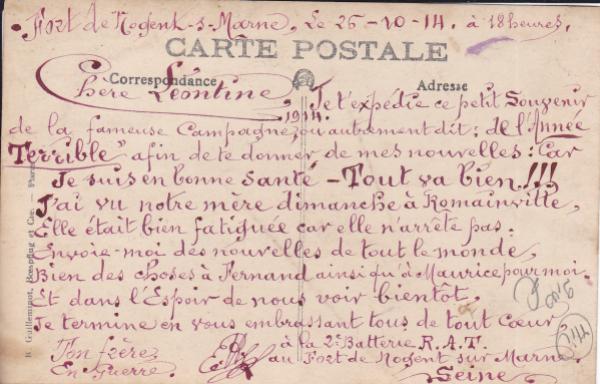 Fort de Nogent-s-Marne, Le 26-10-14. à 18 heures.
CARTE POSTALE
Correspondance
Adresse
Chère Léontine
Je t'expédie ce petit Souvenir
de la fameuse Campagne, 1914. ou autrement dit: de l'Année
Terrible" afin de te donner de mes nouvelles: Car
Je suis en bonne santé - Tout va bien!!!
J'ai vu notre mère dimanche à Romainville,
Elle était bien fatiguée car elle n'arrête pas.
Envoie-moi des nouvelles de tout le monde,
Bien des choses à Fernand ainsi qu'à Maurice pour moi.
Et dans l'Espoir de nous voir bientôt,
Je termine en vous embrassant tous de tout cœur,
Ton frère
En Guerre.
à la 2e Batterie R.A.T.
au Fort de Nogent sur Marne.
Seine